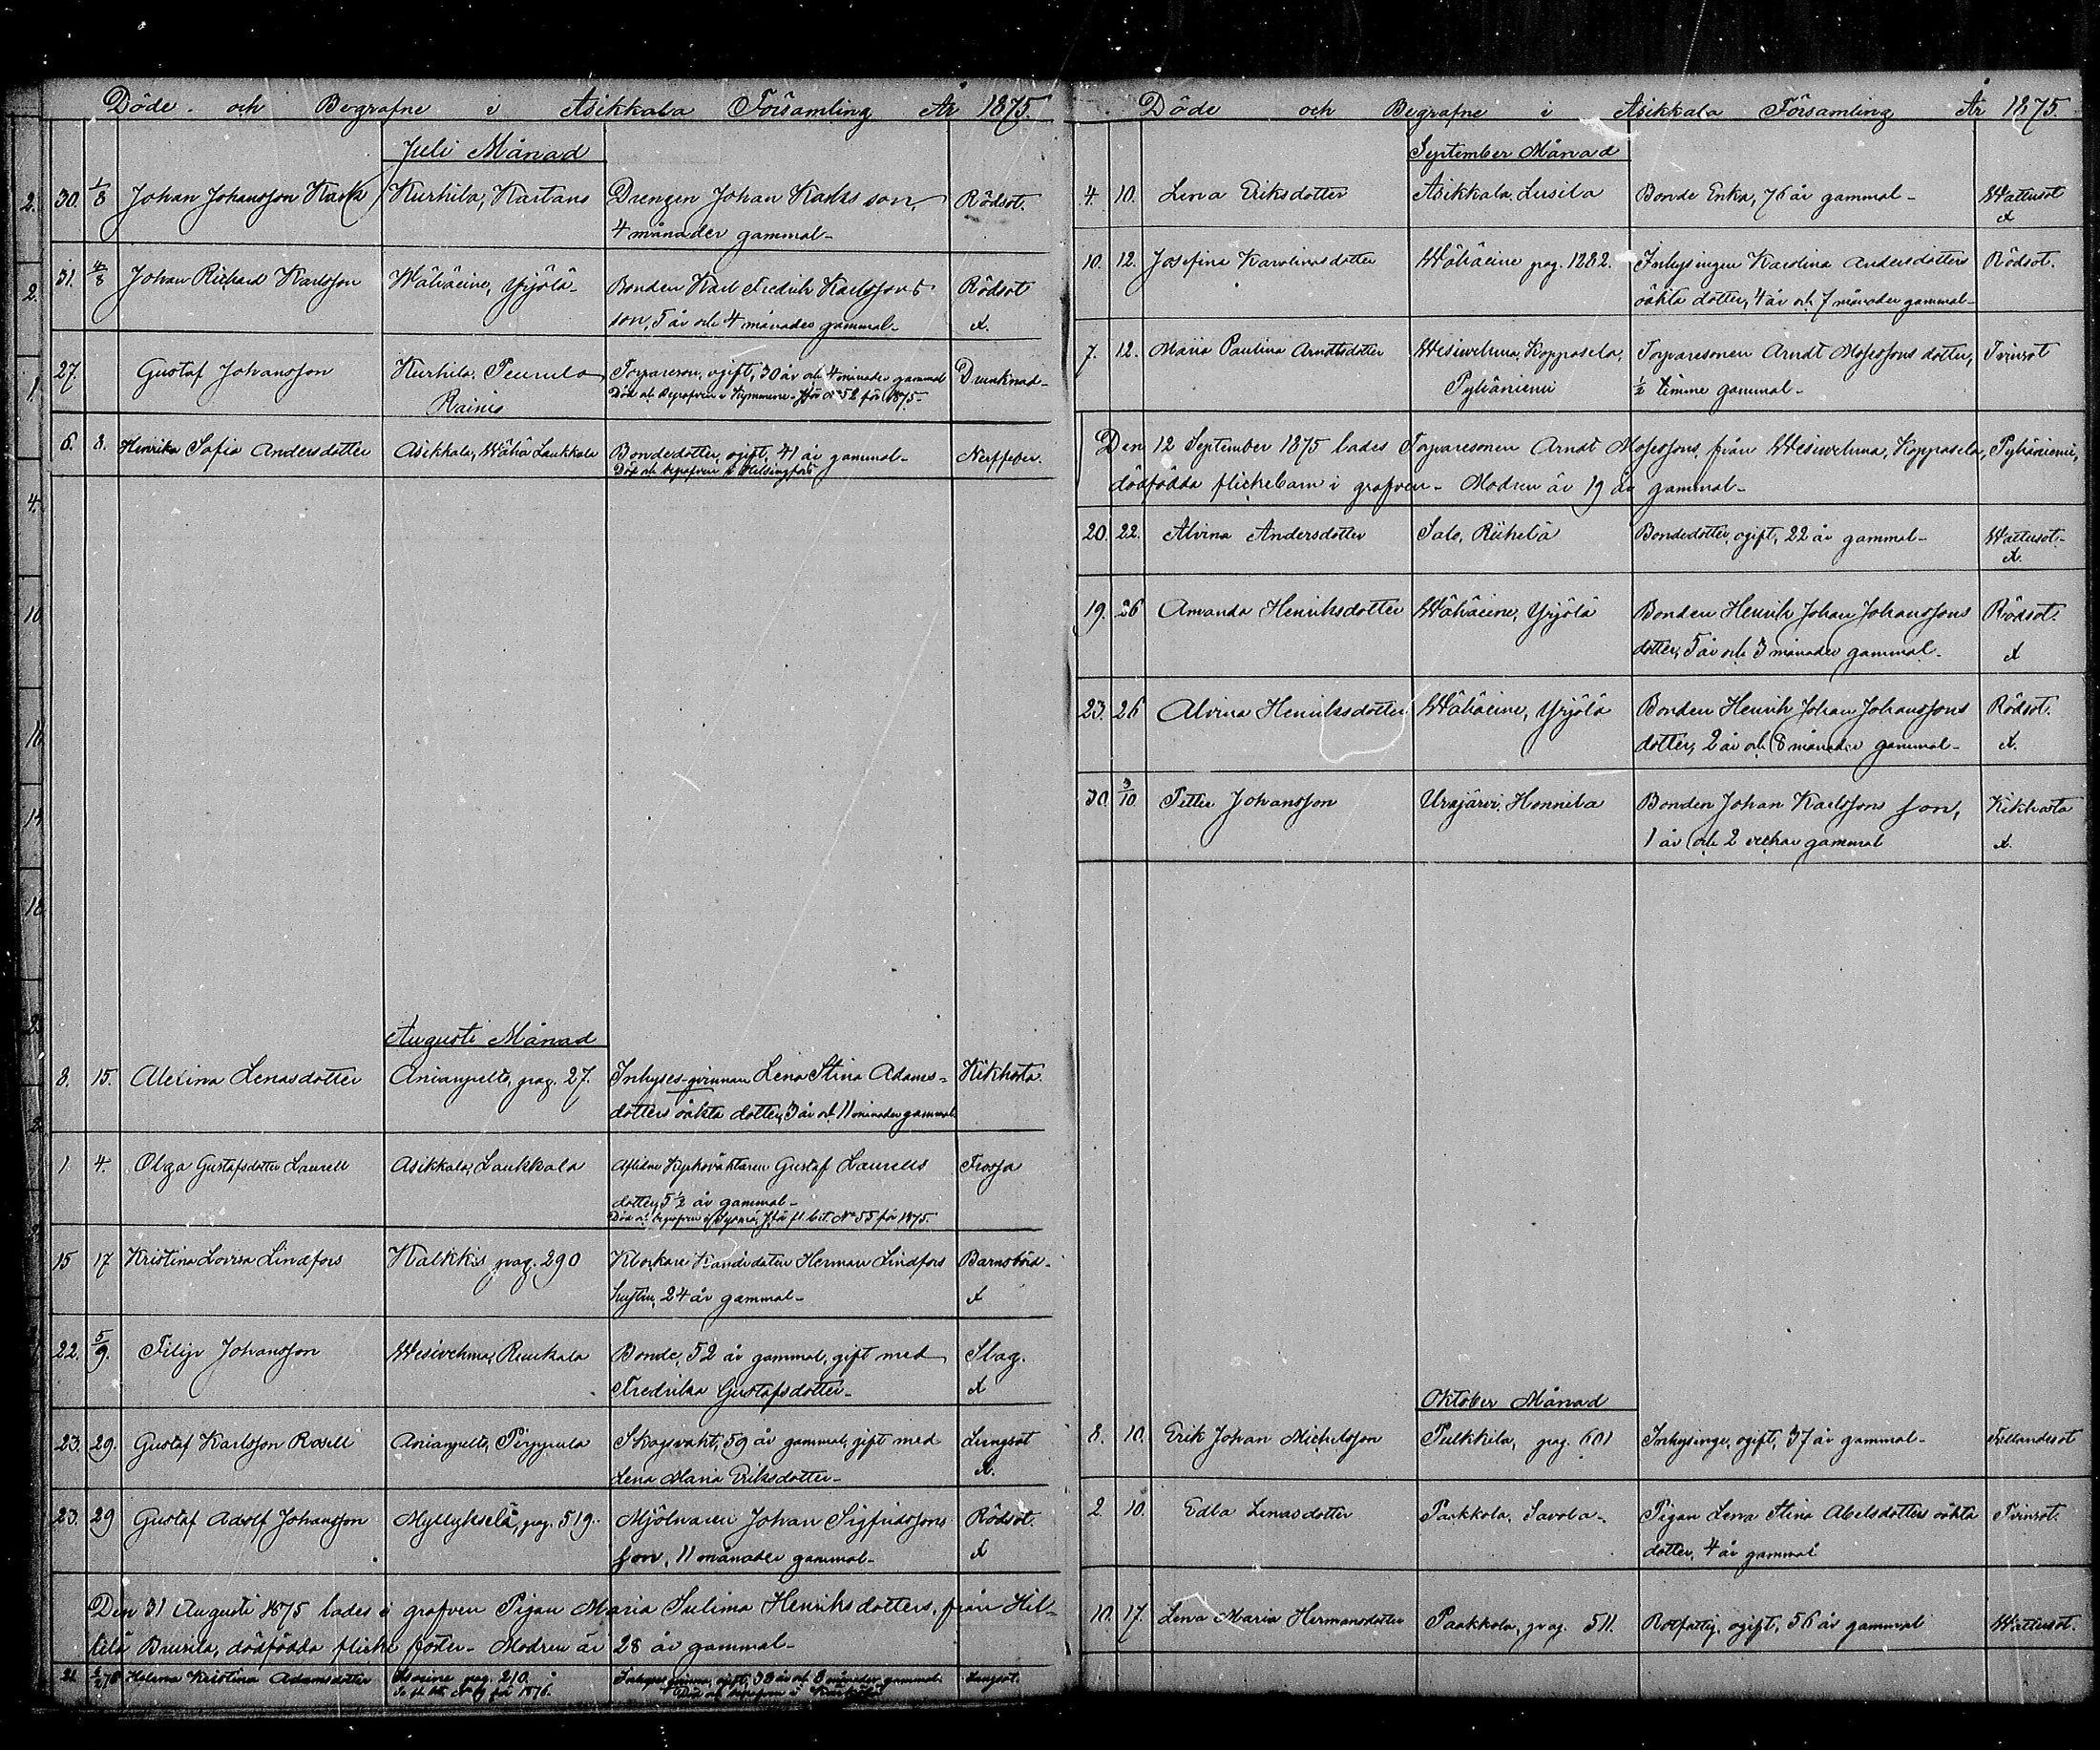 Döde och Begrafne i Asikkala Församling År 1875.
Juli Månad
30. 1/8 Johan Johansson Kurhila, Kartano Drengen Johan son, Rödsot.
4 månader gammal
31. 4/8 Johan Richard Karlsson Wähäeine, Yrjölä Bonden Karl Fredrik Karlssons Rödsot
son, 5 år och 4 månader gammal X.
27. Gustaf Johansson Kurhila, Torpareson, ogift, 30 år och 4 månader gammal Drunknad
Raimio Död och Begrafven i Kymmene. Jför No 52 för 1875.
6. 8. Henrika Sofia Andersdotter Asikkala, Wähä Laukkala Bondedotter, ogift, 41 år gammal Nerffeber.
Död och begrafven i Helsingfors
Augusti Månad
8. 15. Alelina Lenasdotter Anianpelto, pag. 27. Inhyses-qvinnan Lena Stina Adams- Kikhosta.
dotters oäkta dotter, 3 år och 11 månader gammal
1. 4. Olga Gustafsdotter Laurell Asikkala, Laukkala Aflidne Kyrkoväktaren Gustaf Laurells Trosja
dotter, 5 1/2 år gammal
Död och begrafven i Sysmä, Jför fl. bet. No 55 för 1875.
15 17 Kristina Lovisa Lindfors Kalkkis pag. 290 Klockare Kandidaten Herman Lindfors Barnsbörd
hustru, 24 år gammal X
22. 5/9. Filip Johansson Wesivehma, Bonde, 52 år gammal, gift med Slag.
Fredrika Gustafsdotter X
23. 29. Gustaf Karlsson Rosell Anianpelto, Skogsvakt, 59 år gammal, gift med Lungsot
Lena Maria Eriksdotter X.
23. 29 Gustaf Adolf Johansson Myllykselä, pag. 519. Mjölnaren Johan Sigfridssons Rödsot.
son, 11 månader gammal X
Den 31 Augusti 1875 lades i grafven Pigan Maria Sulima Henriksdotters, från Hil-
lilä dödfödda flicke foster. Modren är 28 år gammal
21. Helena Kristina Adamsdotter pag. 210. Inhyses qvinna, ogift, 33 år och 3 månader gammal Lungsot.
Se fl. bet. för 1876. Död och begrafven i
Döde och Begrafne i Asikkala Församling År 1875.
September Månad
4. 10. Lena Eriksdotter Asikkala, Lusila Bonde Enka, 76 år gammal Wattusot
X
10. 12. Josefina Karolinasdotter Wähäeine pag. 1282. Inhysingen Karolina Andersdotters Rödsot.
oäkta dotter, 4 år och 7 månader gammal
7. 12. Maria Paulina Arndtsdotter Wesivehma, Kopposela, Torparesonen Arndt Mosessons dotter, Tvinsot
Pyhäniemi 1/2 timme gammal
Den 12 September 1875 lades Torparesonen Arndt Mosessons från Wesivehma, Kopposela, Pyhäniemi,
dödfödda flickebarn i grafven. Modren är 19 år gammal
20. 22. Alvina Andersdotter Salo, Riihelä Bondedotter, ogift, 22 år gammal Wattusot
X.
19. 26 Amanda Henriksdotter Wähäeine, Yrjölä Bonden Henrik Johan Johanssons Rödsot.
dotter, 5 år och 3 månader gammal X
23. 26 Alvina Henriksdotter Wähäeine, Yrjölä Bonden Henrik Johan Johanssons Rödsot.
dotter, 2 år och 8 månader gammal X.
30. 3/10 Petter Johansson Urajärvi, Honnila Bonden Johan Karlssons son, Kikhosta
1 år och 2 veckor gammal X.
Oktober Månad
8. 10. Erik Johan Michelsson Pulkkila, pag. 601 Inhysinge, ogift, 37 år gammal Fallandesot
2. 10. Edla Lenasdotter Paakkola, Savola Pigan Lena Stina Abelsdotters oäkta Tvinsot.
dotter, 4 år gammal
10. 17. Lena Maria Hermansdotter Paakkola, pag. 511. Rotfattig, ogift, 56 år gammal Wattusot.